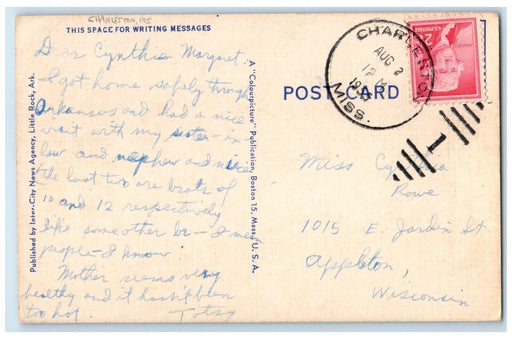 CHARLESTON, MS
THIS SPACE FOR WRITING MESSAGES
Dear Cynthia Margaret,
I got home safely through
Arkansas and had a nice
visit with my sister-in
law and nephew and niece
the last two are brats of
10 and 12 respectively
like some other br— I mean
people— I know.
Mother seems very
healthy and it hasn't been
too hot.
Totsy
Published by Inter-City News Agency, Little Rock, Ark.
A "Colourpicture" Publication, Boston 15, Mass., U. S. A.
POST CARD
CHARLESTON
AUG 2
MISS.
2¢
Miss Cynthia
Rowe
1015 E. Jardin St
Appleton,
Wisconsin